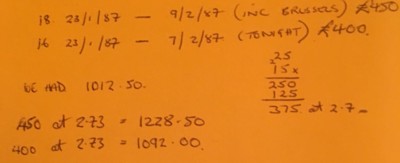 18. 23/1/87 — 9/2/87 (INC BRUSSELS) £450
16 23/1/87 — 7/2/87 (TONIGHT) £400.
25
15x
250
125
375 at 2.7
WE HAD 1012.50.
450 at 2.73 = 1228.50
400 at 2.73 = 1092.00.